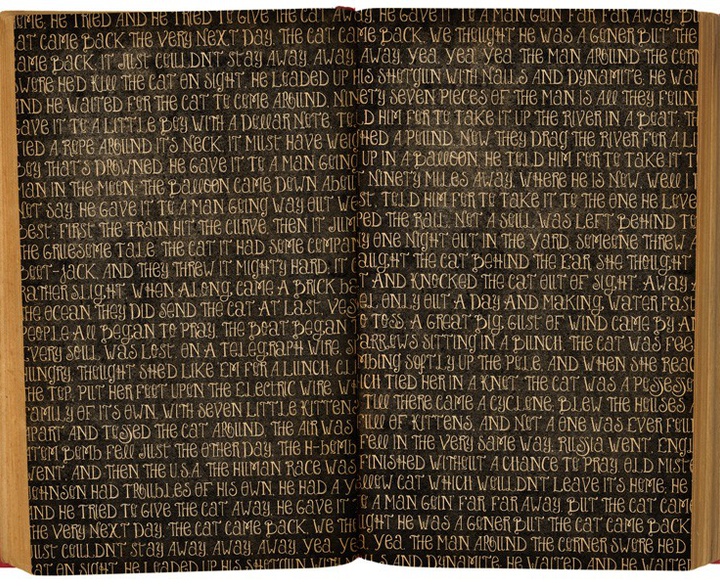 HE TRIED AND HE TRIED TO GIVE THE CAT AWAY, HE GAVE IT TO A MAN GOIN FAR FAR AWAY. BUT
CAT CAME BACK THE VERY NEXT DAY. THE CAT CAME BACK. WE THOUGHT HE WAS A GONER BUT THE
CAME BACK. IT JUST COULDNT STAY AWAY. AWAY, AWAY. YEA, YEA, YEA THE MAN AROUND THE CORN
SWORE HED KILL THE CAT ON SIGHT. HE LOADED UP HIS SHOTGUN WITH NAILS AND DYNAMITE. HE WAI
AND HE WAITED FOR THE CAT TO COME AROUND. NINETY SEVEN PIECES OF THE MAN IS ALL THEY FOUN
GAVE IT TO A LITTLE BOY WITH A DOLLAR NOTE. TOLD HIM FOR TO TAKE IT UP THE RIVER IN A BOAT. TH
TIED A ROPE AROUND IT'S NECK. IT MUST HAVE WEIGHED A POUND. NOW THEY DRAG THE RIVER FOR A LI
BOY THAT'S DROWNED. HE GAVE IT TO A MAN GOING UP IN A BALLOON. HE TOLD HIM FOR TO TAKE IT T
MAN IN THE MOON. THE BALLOON CAME DOWN ABOUT NINETY MILES AWAY. WHERE HE IS NOW, WELL I
NOT SAY. HE GAVE IT TO A MAN GOING WAY OUT WEST, TOLD HIM FOR TO TAKE IT TO THE ONE HE LOVE
BEST. FIRST THE TRAIN HIT THE CURVE, THEN IT JUMPED THE RAIL. NOT A SOUL WAS LEFT BEHIND TO
THE GRUESOME TALE. THE CAT IT HAD SOME COMPANY ONE NIGHT OUT IN THE YARD. SOMEONE THREW A
BOOT-JACK, AND THEY THREW IT MIGHTY HARD. IT CAUGHT THE CAT BEHIND THE EAR SHE THOUGHT
RATHER SLIGHT. WHEN ALONG CAME A BRICK BAT AND KNOCKED THE CAT OUT OF SIGHT. AWAY A
THE OCEAN THEY DID SEND THE CAT AT LAST, VESSEL ONLY OUT A DAY AND MAKING WATER FAST
PEOPLE ALL BEGAN TO PRAY. THE BOAT BEGAN TO TOSS. A GREAT BIG GUST OF WIND CAME BY AN
EVERY SOUL WAS LOST. ON A TELEGRAPH WIRE, SPARROWS SITTING IN A BUNCH. THE CAT WAS FEE
HUNGRY, THOUGHT SHE'D LIKE EM FOR A LUNCH. CLIMBING SOFTLY UP THE POLE, AND WHEN SHE REAC
THE TOP, PUT HER FOOT UPON THE ELECTRIC WIRE, WHICH TIED HER IN A KNOT. THE CAT WAS A POSSESSO
FAMILY OF IT'S OWN, WITH SEVEN LITTLE KITTENS TILL THERE CAME A CYCLONE. BLEW THE HOUSES
APART AND TOSSED THE CAT AROUND. THE AIR WAS FULL OF KITTENS, AND NOT A ONE WAS EVER FOUN
ATOM BOMB FELL JUST THE OTHER DAY, THE H-BOMB FELL IN THE VERY SAME WAY. RUSSIA WENT, ENGL
WENT, AND THEN THE U.S.A. THE HUMAN RACE WAS FINISHED WITHOUT A CHANCE TO PRAY. OLD MIST
JOHNSON HAD TROUBLES OF HIS OWN. HE HAD A YELLOW CAT WHICH WOULDN'T LEAVE IT'S HOME. HE
AND HE TRIED TO GIVE THE CAT AWAY, HE GAVE IT TO A MAN GOIN FAR FAR AWAY. BUT THE CAT CAME
THE VERY NEXT DAY. THE CAT CAME BACK, WE THOUGHT HE WAS A GONER BUT THE CAT CAME BACK
JUST COULDNT STAY AWAY. AWAY, AWAY. YEA, YEA, YEA. THE MAN AROUND THE CORNER SWORE HED
CAT ON SIGHT. HE LOADED UP HIS SHOTGUN WITH NAILS AND DYNAMITE. HE WAITED AND HE WAITED